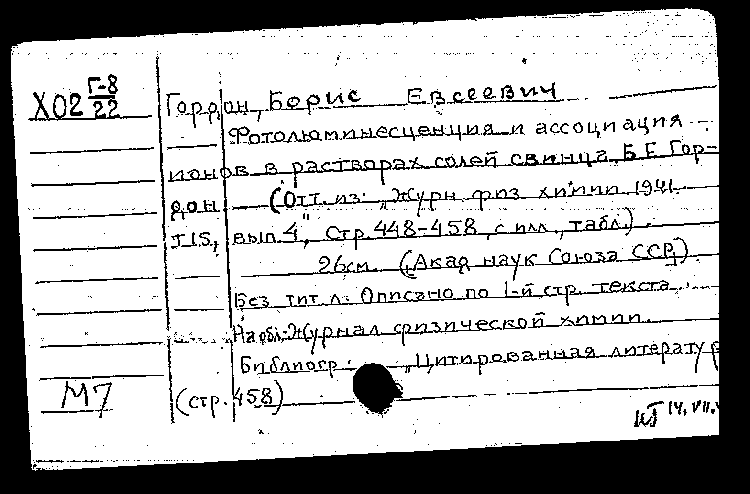 Х02 Г-8/22
Гордон, Борис Евсеевич
Фотолюминесценция и ассоциация
ионов в растворах солей свинца, Б.Е. Гор-
дон. (Отт. из: „Журн. физ. химии. 1941.
т15, вып. 4", Стр. 448-458, с илл., табл.).
26см. (Акад. наук Союза ССР).
Без тит. л. Описано по 1-й стр. текста.
На обл.: Журнал физической химии.
Библиогр.: „Цитированная литератур
М7
(стр. 458)